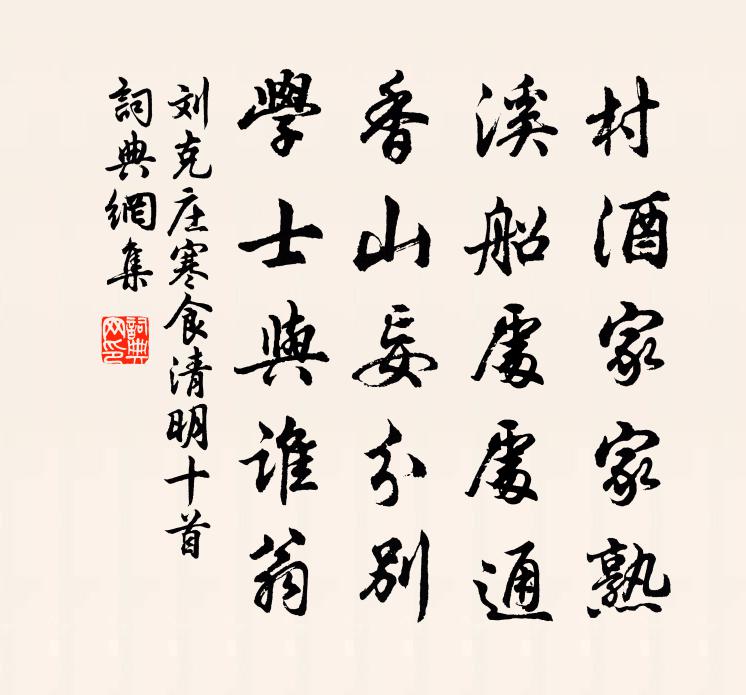 村酒家家熟
溪船處處通
香山妄分別
學士與誰翁
刘克庄寒食清明十首
詞典網集
詞典网印